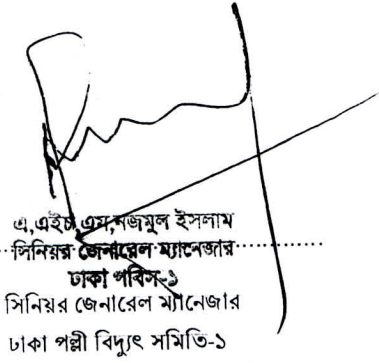 এ,এইচ,এম,নজমুল ইসলাম
সিনিয়র জেনারেল ম্যানেজার
ঢাকা পবিস-১
সিনিয়র জেনারেল ম্যানেজার
ঢাকা পল্লী বিদ্যুৎ সমিতি-১